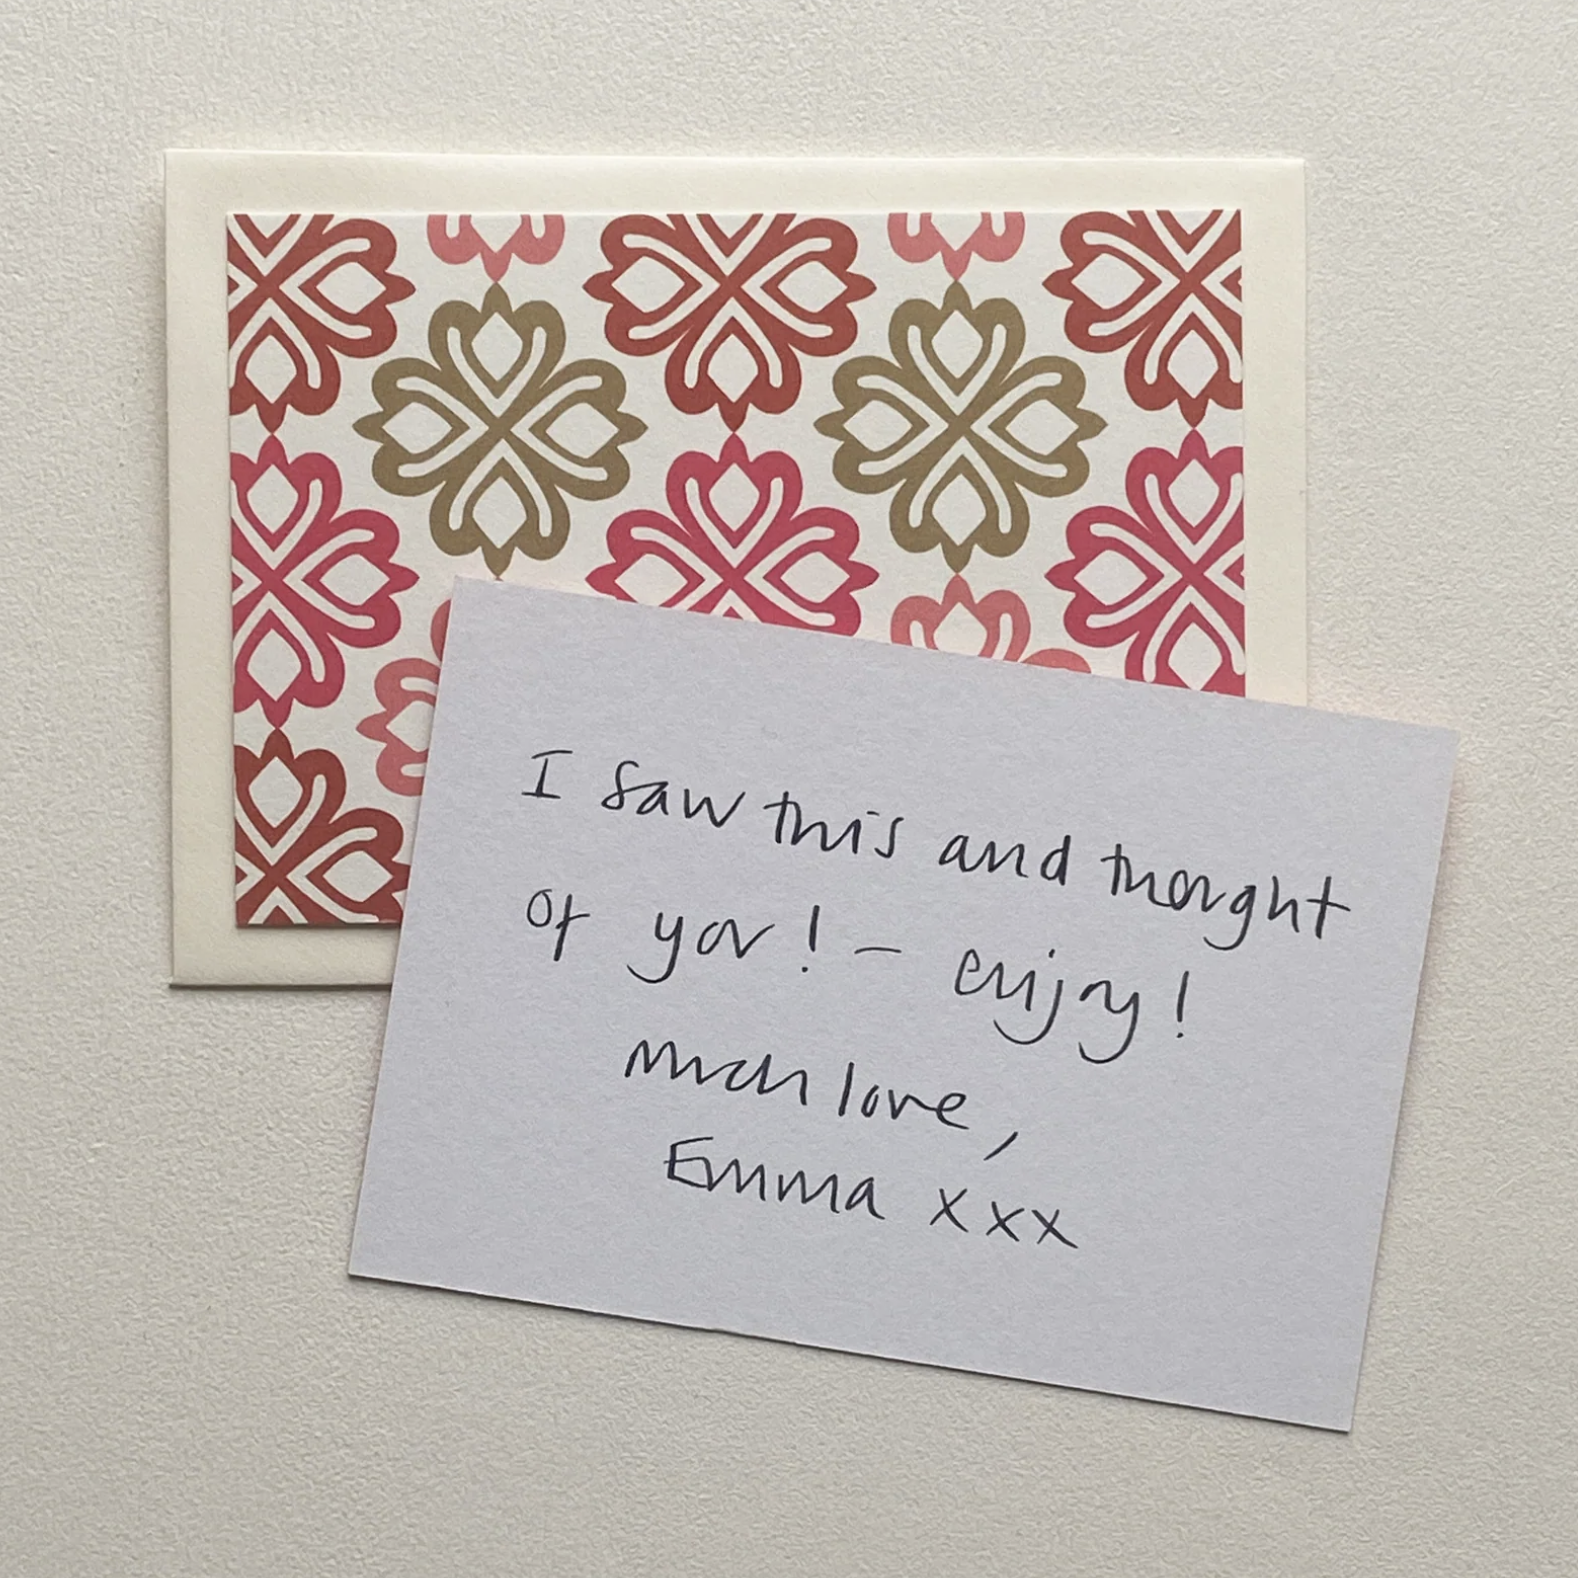 I saw this and thought
of you! – enjoy!
much love,
Emma xxx